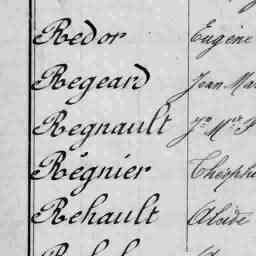 Redor Eugène
Regeard Jean Ma
Regnault Jn Mie F
Régnier Théoph
Rehault Alcide